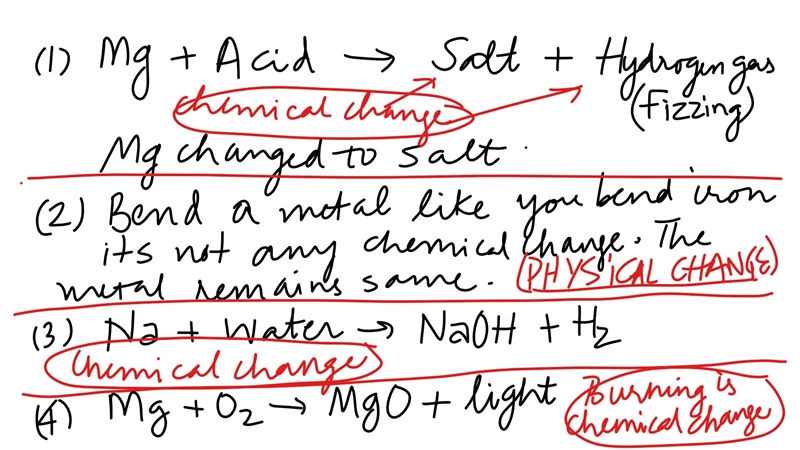 (1) Mg + Acid → Salt + Hydrogen gas
chemical change (fizzing)
Mg changed to salt.
(2) Bend a metal like you bend iron
its not any chemical change. The
metal remains same. (PHYSICAL CHANGE)
(3) Na + Water → NaOH + H₂
Chemical change
(4) Mg + O₂ → MgO + light Burning is
chemical change